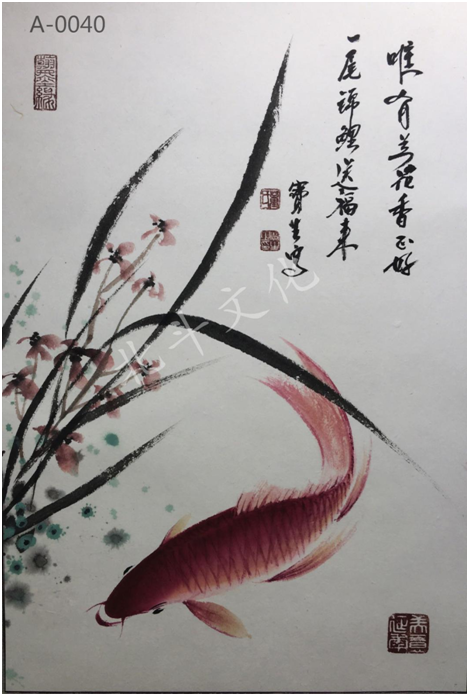 A-0040
唯有兰花香正好
一尾锦鲤送福来
宝生写
北斗文化